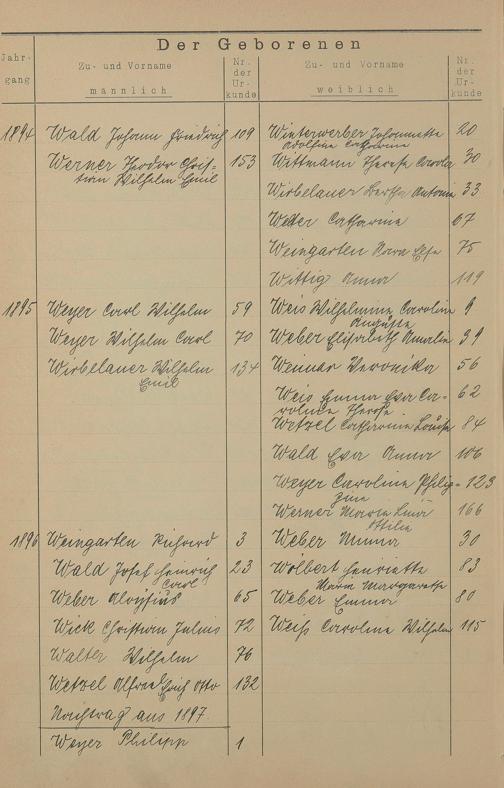 Der Geborenen
Jahr-
gang
Zu- und Vorname
männlich
Nr.
der
Ur-
kunde
Zu- und Vorname
weiblich
Nr.
der
Ur-
kunde
1894 Wald Johann Friedrich 109 Winterwerber Johannette 20
Adolfine Catharine
Werner Theodor Chris- 153 Wittmann Therese Carola 30
tian Wilhelm Emil
Wirbelauer Bertha Antonie 33
Weder Catharine 67
Weingarten Clara Else 75
Wittig Anna 119
1895 Weyer Carl Wilhelm 59 Weis Wilhelmine Caroline 9
Auguste
Weyer Wilhelm Carl 70 Weber Elisabeth Amalie 39
Wirbelauer Wilhelm 134 Weimar Veronika 56
Emil
Weis Emma Eva Ca- 62
roline Therese
Wetzel Catharine Louise 84
Wald Eva Anna 106
Weyer Caroline Philip- 123
pine
Werner Maria Lina 166
Ottilie
1896 Weingarten Richard 3 Weber Minna 30
Wald Josef Heinrich 23 Wolbert Henriette 83
Carl
Maria Margarethe
Weber Aloysius 65 Weber Emma 80
Wick Christian Julius 72 Weiß Caroline Wilhelm 115
Walter Wilhelm 76
Wetzel Alfred Erich Otto 132
Nachtrag aus 1897
Weyer Philipp 1